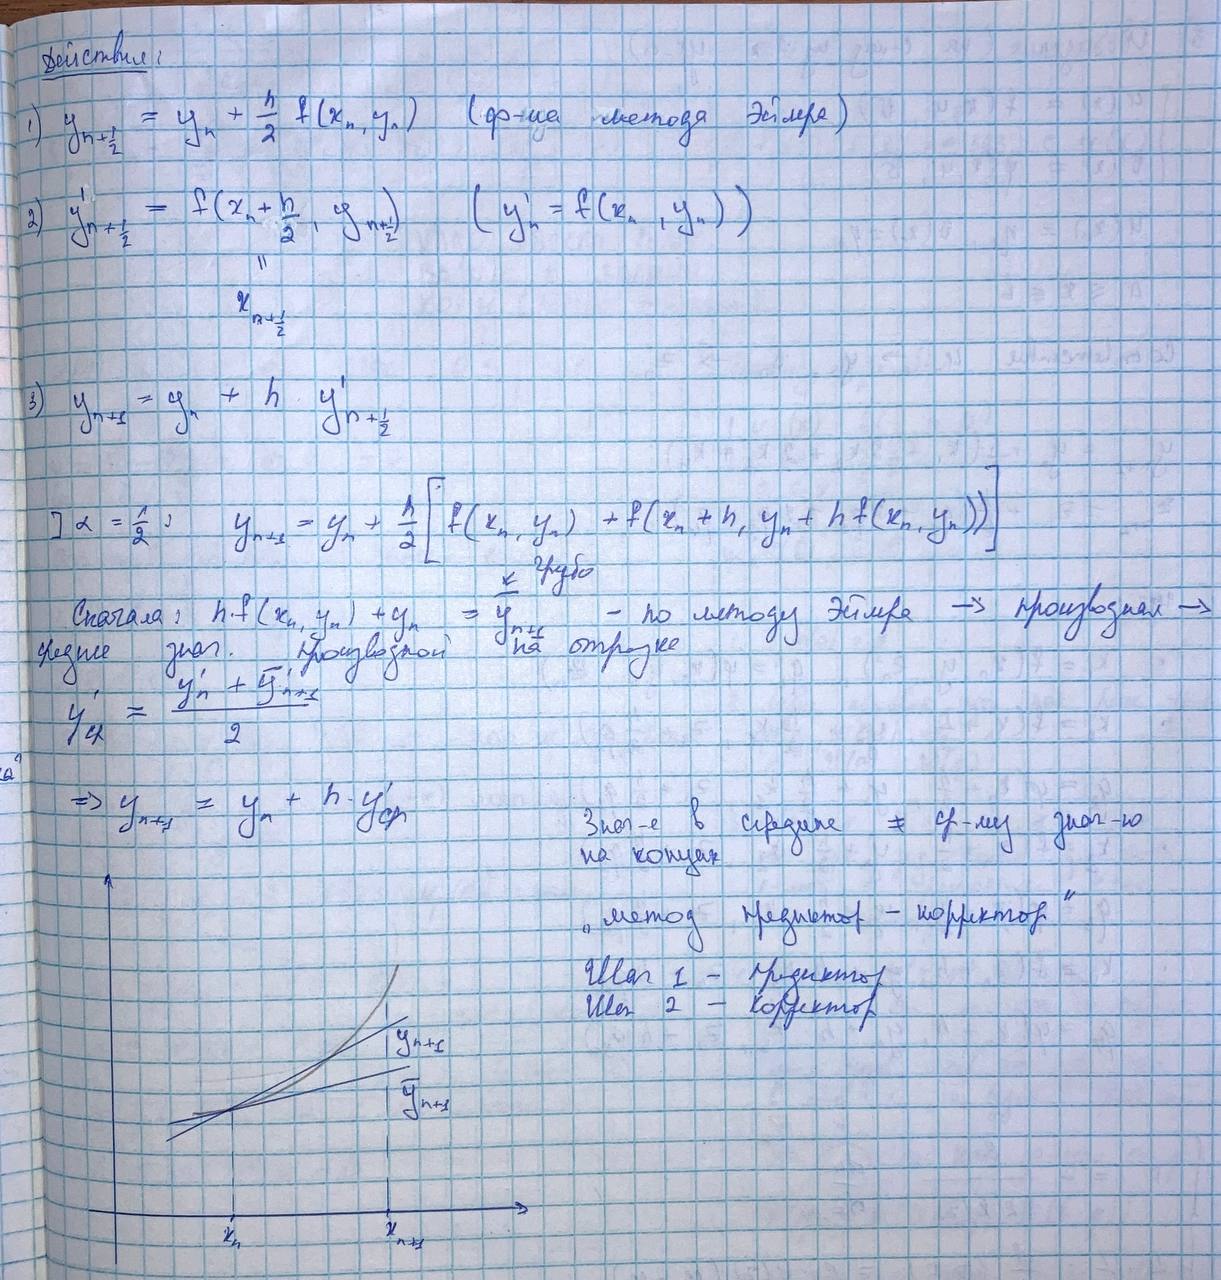 Действия:
1) y_{n+\frac{1}{2}} = y_n + \frac{h}{2} f(x_n, y_n) (ф-ла метода Эйлера)
2) y'_{n+\frac{1}{2}} = f(x_n + \frac{h}{2}, y_{n+\frac{1}{2}}) (y'_n = f(x_n, y_n))
"
x_{n+\frac{1}{2}}
3) y_{n+1} = y_n + h \cdot y'_{n+\frac{1}{2}}
] α = \frac{1}{2}: y_{n+1} = y_n + \frac{h}{2} [f(x_n, y_n) + f(x_n + h, y_n + h f(x_n, y_n))]
к грубо
Сначала: h·f(x_n, y_n) + y_n = \overline{y}_{n+1} – по методу Эйлера → производная →
средне знач. производной на отрезке
y'_{ср} = \frac{y'_n + \overline{y}'_{n+1}}{2}
⇒ y_{n+1} = y_n + h · y'_{ср}
Знач-е в середине ≠ ср-му знач-ю
на концах
„метод предиктор – корректор"
Шаг 1 – предиктор
Шаг 2 – корректор
y_{n+1}
\overline{y}_{n+1}
x_n x_{n+1}